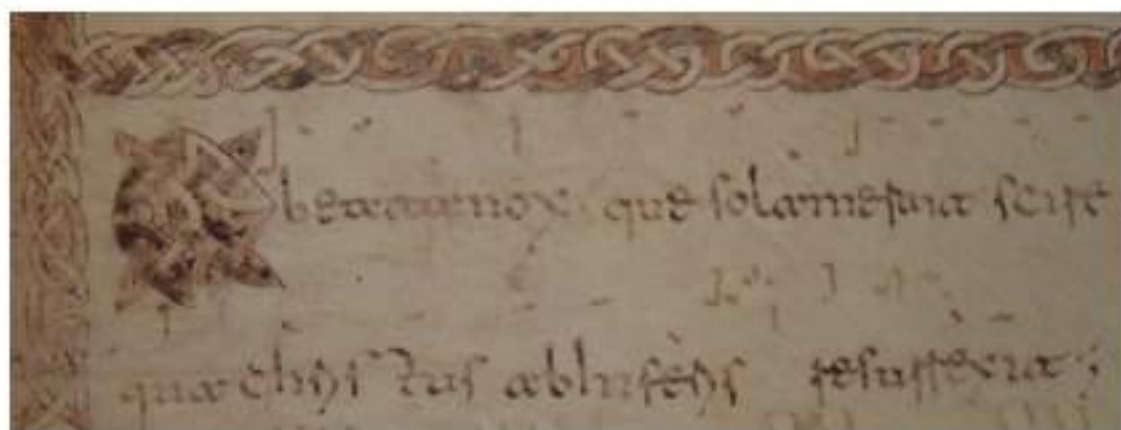 O beata nox que sola meruit scire
qua chris tus ab inferis resurrexit;